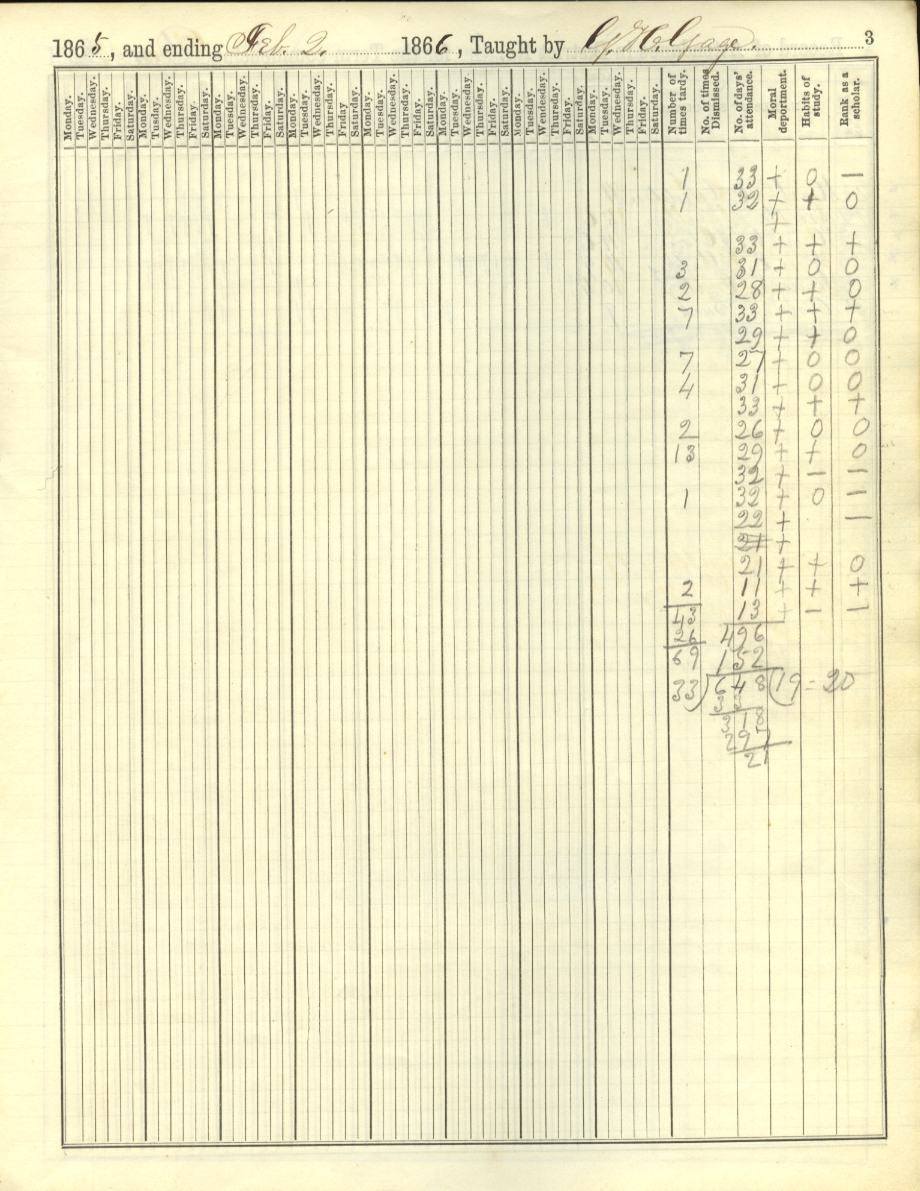 1865, and ending Feb. 2. 1866, Taught by G. H. Gage. 3
Monday. Tuesday. Wednesday. Thursday. Friday. Saturday. Monday. Tuesday. Wednesday. Thursday. Friday. Saturday. Monday. Tuesday. Wednesday. Thursday. Friday. Saturday. Monday. Tuesday. Wednesday. Thursday. Friday Saturday. Monday. Tuesday. Wednesday. Thursday. Friday. Saturday. Monday. Tuesday. Wednesday Thursday. Friday. Saturday. Monday Tuesday. Wendesday. Thursday. Friday. Saturday. Monday. Tuesday. Wednesday. Thursday. Friday. Saturday. Number of times tardy. No. of times Dismissed. No. of days' attendance. Moral deportment. Habits of study. Rank as a scholar.
1 33 + 0 —
1 32 + + 0
+
33 + + +
3 31 + 0 0
2 28 + + 0
7 33 + + +
29 + + 0
7 27 + 0 0
4 31 + 0 0
33 + + +
2 26 + 0 0
13 29 + + 0
32 + — —
1 32 + 0 —
22 + —
+
21 + + 0
2 11 + + +
43 13 + — —
26 496
69 152
33)648(19=20
33
318
297
21